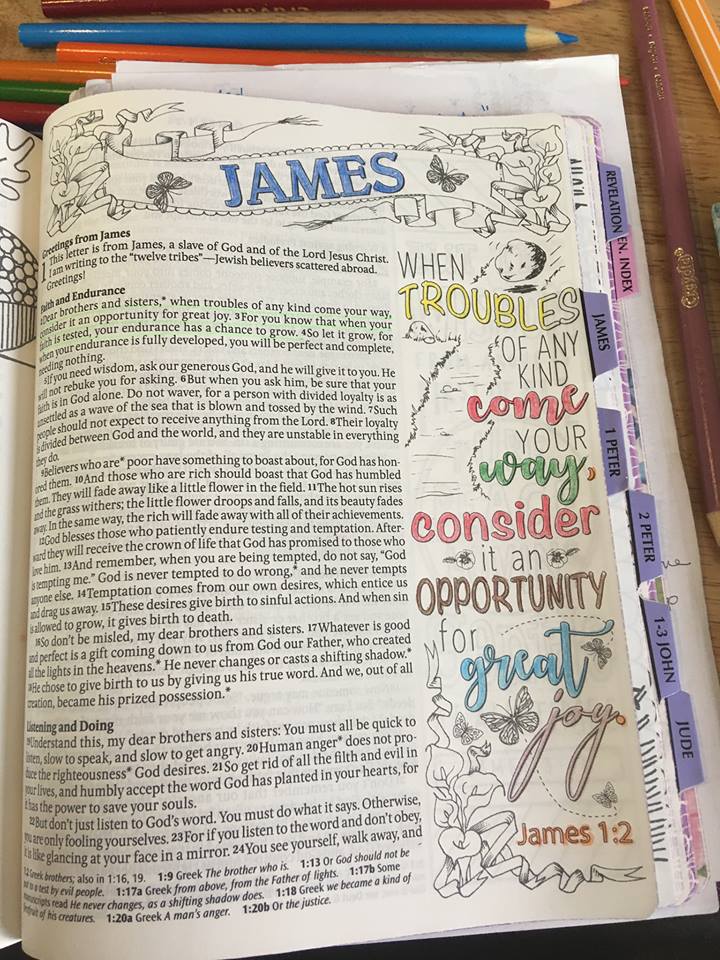 JAMES
Greetings from James
1 This letter is from James, a slave of God and of the Lord Jesus Christ.
I am writing to the “twelve tribes”—Jewish believers scattered abroad.
Greetings!
Faith and Endurance
2Dear brothers and sisters,* when troubles of any kind come your way,
consider it an opportunity for great joy. 3For you know that when your
faith is tested, your endurance has a chance to grow. 4So let it grow, for
when your endurance is fully developed, you will be perfect and complete,
needing nothing.
5If you need wisdom, ask our generous God, and he will give it to you. He
will not rebuke you for asking. 6But when you ask him, be sure that your
faith is in God alone. Do not waver, for a person with divided loyalty is as
unsettled as a wave of the sea that is blown and tossed by the wind. 7Such
people should not expect to receive anything from the Lord. 8Their loyalty
is divided between God and the world, and they are unstable in everything
they do.
9Believers who are* poor have something to boast about, for God has hon-
ored them. 10And those who are rich should boast that God has humbled
them. They will fade away like a little flower in the field. 11The hot sun rises
and the grass withers; the little flower droops and falls, and its beauty fades
away. In the same way, the rich will fade away with all of their achievements.
12God blesses those who patiently endure testing and temptation. After-
ward they will receive the crown of life that God has promised to those who
love him. 13And remember, when you are being tempted, do not say, “God
is tempting me.” God is never tempted to do wrong,* and he never tempts
anyone else. 14Temptation comes from our own desires, which entice us
and drag us away. 15These desires give birth to sinful actions. And when sin
is allowed to grow, it gives birth to death.
16So don’t be misled, my dear brothers and sisters. 17Whatever is good
and perfect is a gift coming down to us from God our Father, who created
all the lights in the heavens.* He never changes or casts a shifting shadow.*
18He chose to give birth to us by giving us his true word. And we, out of all
creation, became his prized possession.*
Listening and Doing
19Understand this, my dear brothers and sisters: You must all be quick to
listen, slow to speak, and slow to get angry. 20Human anger* does not pro-
duce the righteousness* God desires. 21So get rid of all the filth and evil in
your lives, and humbly accept the word God has planted in your hearts, for
it has the power to save your souls.
22But don’t just listen to God’s word. You must do what it says. Otherwise,
you are only fooling yourselves. 23For if you listen to the word and don’t obey,
it is like glancing at your face in a mirror. 24You see yourself, walk away, and
1:2 Greek brothers; also in 1:16, 19. 1:9 Greek The brother who is. 1:13 Or God should not be
put to a test by evil people. 1:17a Greek from above, from the Father of lights. 1:17b Some
manuscripts read He never changes, as a shifting shadow does. 1:18 Greek we became a kind of
firstfruit of his creatures. 1:20a Greek A man’s anger. 1:20b Or the justice.
WHEN
TROUBLES
OF ANY
KIND
come
YOUR
way,
consider
it an
OPPORTUNITY
for
great
joy.
James 1:2
REVELATION
EN. INDEX
JAMES
1 PETER
2 PETER
1-3 JOHN
JUDE
Crayola